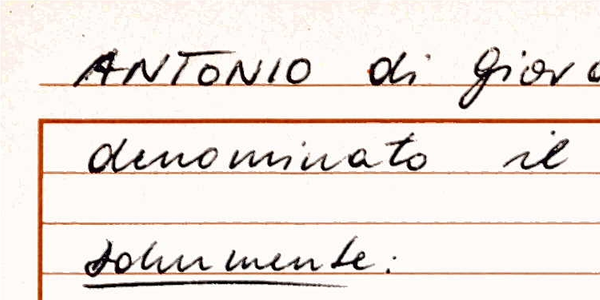 ANTONIO di Giova
denominato il
solumente: